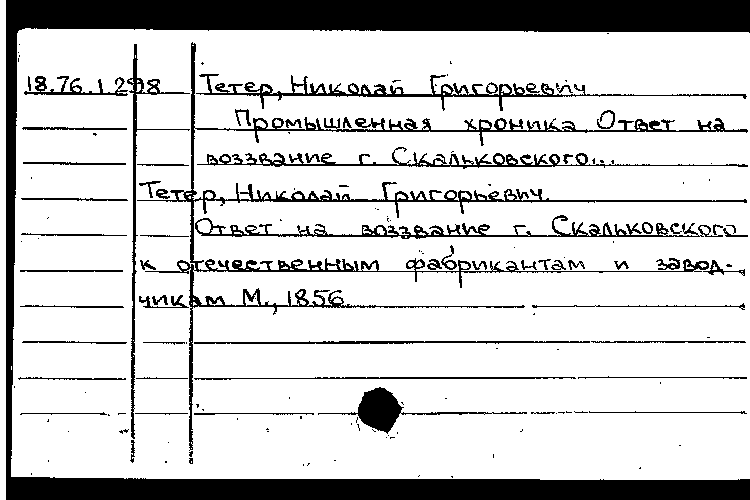 18.76.1.298 Тетер, Николай Григорьевич
Промышленная хроника Ответ на
воззвание г. Скальковского...
Тетер, Николай Григорьевич.
Ответ на воззвание г. Скальковского
к отечественным фабрикантам и завод-
чикам М., 1856.